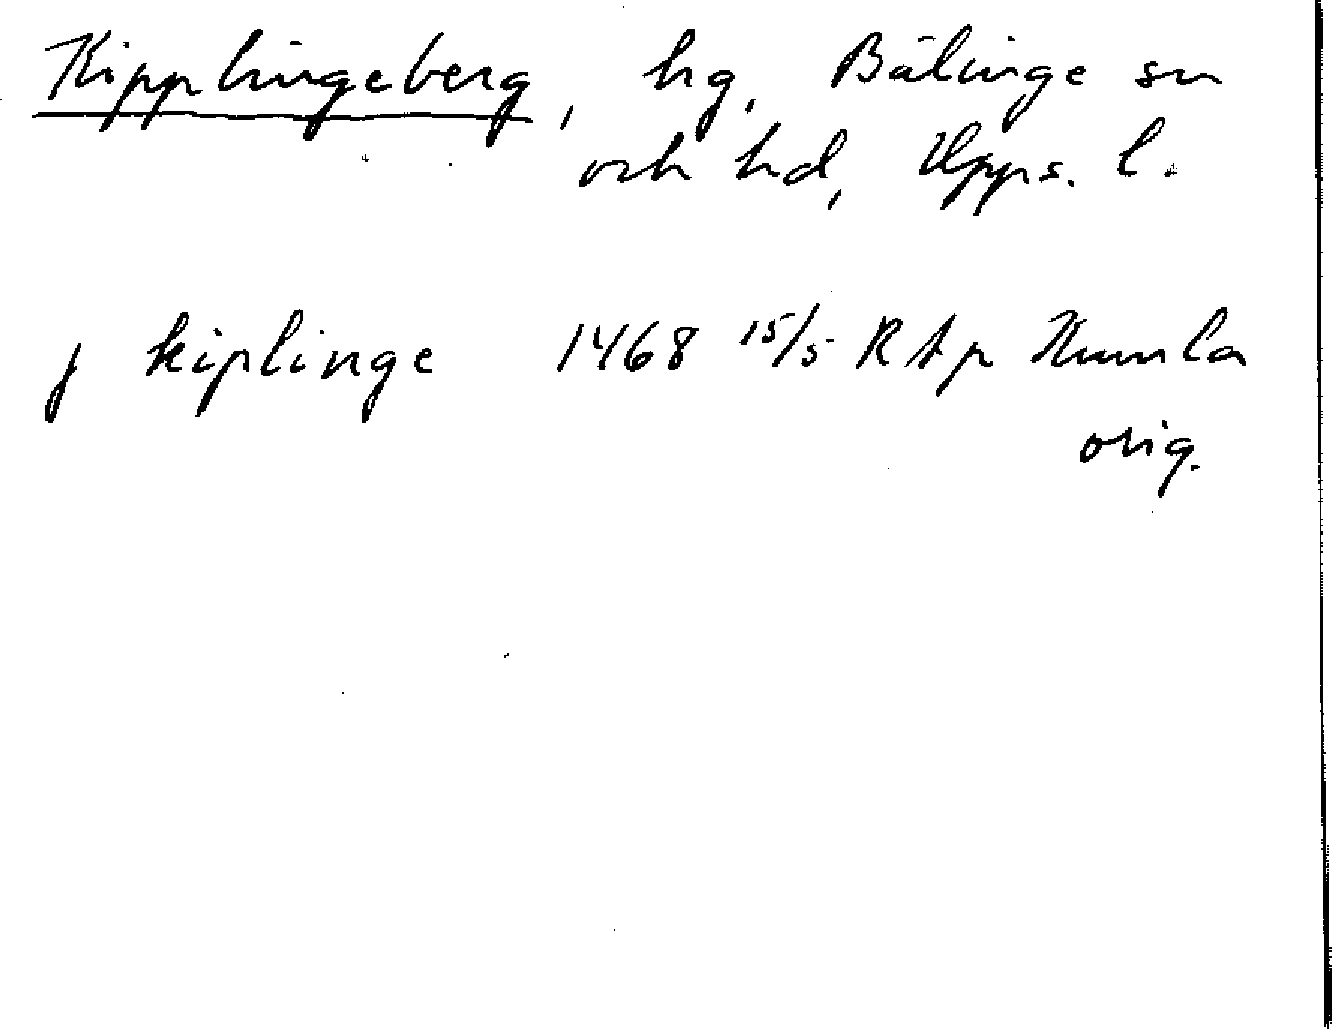 Kipplingeberg, hg, Bälinge sn
och hd, Upps. l.
j kiplinge 1468 15/5 RAp Humla
orig.